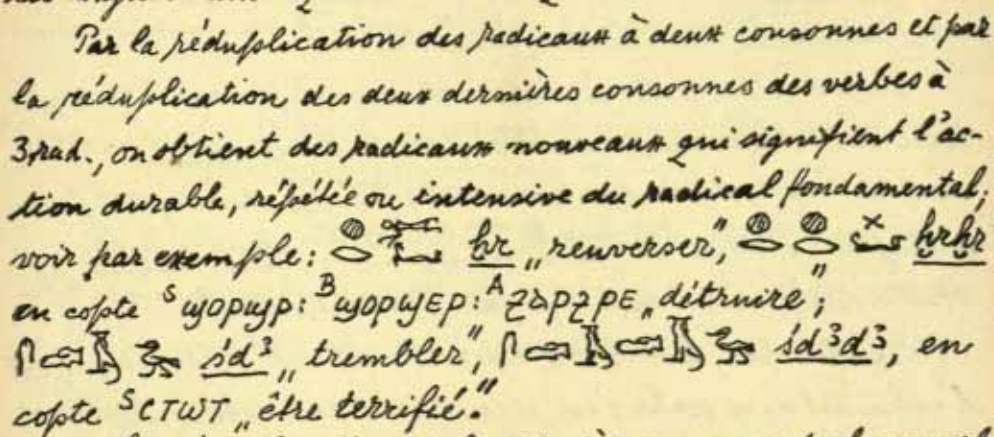 Par la réduplication des radicaux à deux consonnes et par
la réduplication des deux dernières consonnes des verbes à
3 rad., on obtient des radicaux nouveaux qui signifient l'ac-
tion durable, répétée ou intensive du radical fondamental;
voir par exemple: 𓐍𓂋 ḫr „renverser”, 𓐍𓂋𓐍𓂋 ḫrḫr
en copte ˢϣⲟⲣϣⲣ: ᴮϣⲟⲣϣⲉⲣ: ᴬϩⲁⲣϩⲣⲉ „détruire”;
𓋴𓂧𓄿𓅭 śdꜣ „trembler”, 𓋴𓂧𓄿𓂧𓄿𓅭 śdꜣdꜣ, en
copte ˢⲥⲧⲱⲧ „être terrifié.”